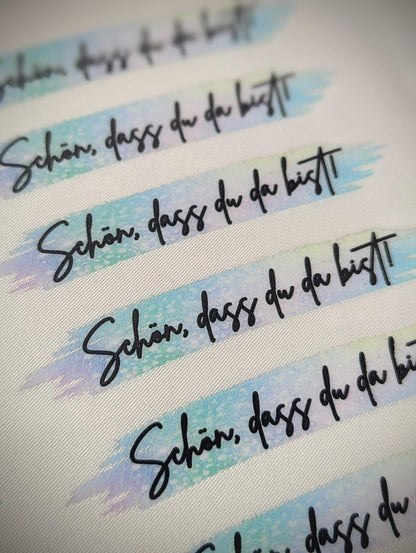 Schön, dass du da bist!
Schön, dass du da bist!
Schön, dass du da bist!
Schön, dass du da bist!
Schön, dass du da bi
Schön, dass du